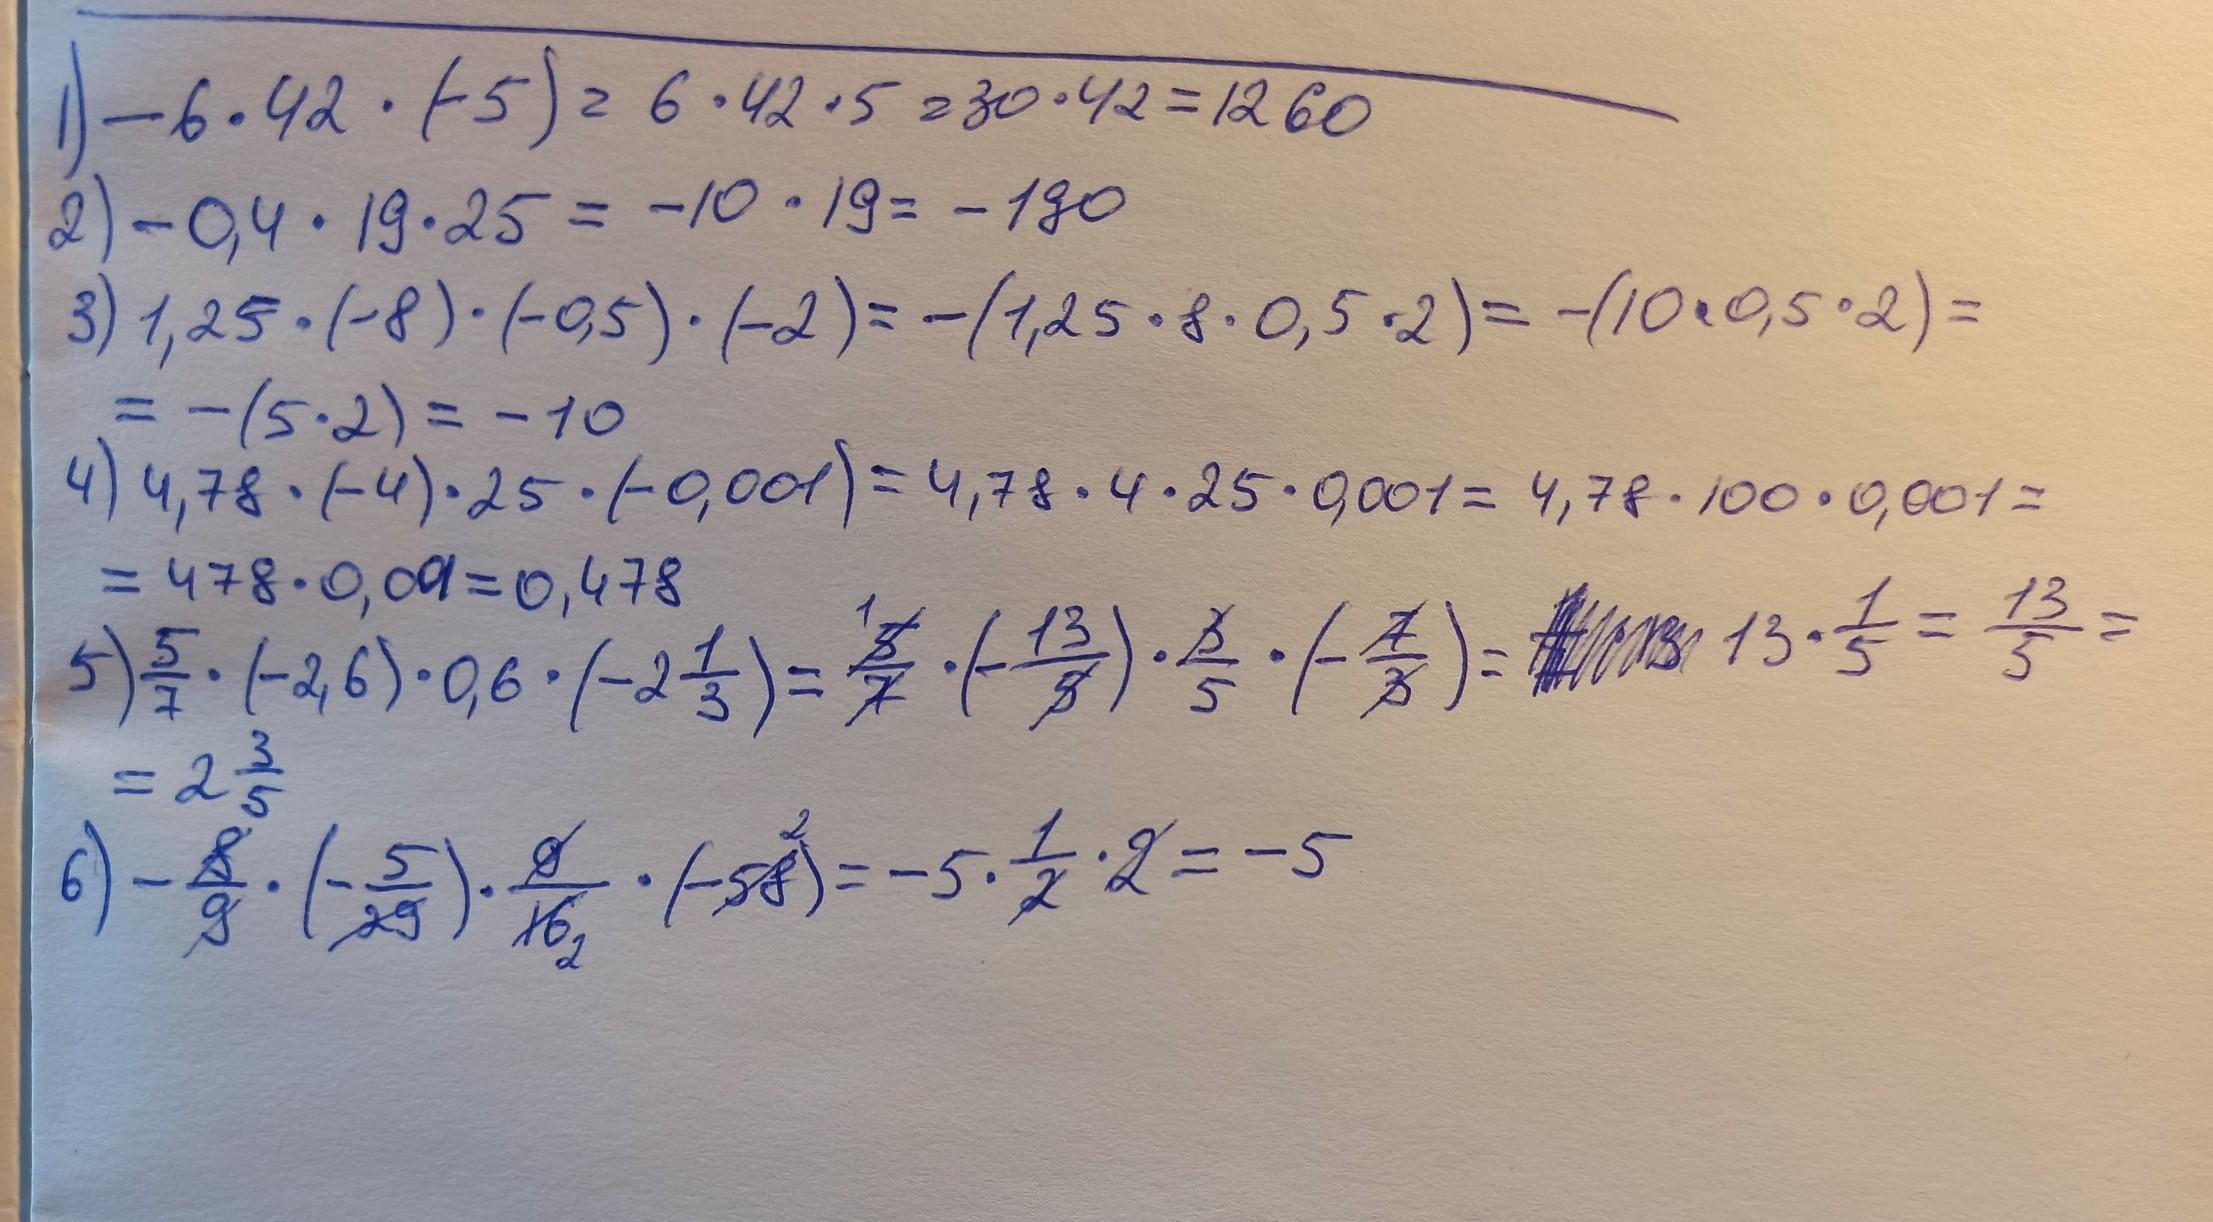 1) −6·42·(−5) = 6·42·5 = 30·42 = 1260
2) −0,4·19·25 = −10·19 = −190
3) 1,25·(−8)·(−0,5)·(−2) = −(1,25·8·0,5·2) = −(10·0,5·2) =
= −(5·2) = −10
4) 4,78·(−4)·25·(−0,001) = 4,78·4·25·0,001 = 4,78·100·0,001 =
= 478·0,001 = 0,478
5) 5/7·(−2,6)·0,6·(−2 1/3) = 1 5/7·(−13/5)·3/5·(−7/3) = 13·1/5 = 13/5 =
= 2 3/5
6) −8/9·(−5/29)·9/16 2·(−58 2) = −5·1/2·2 = −5